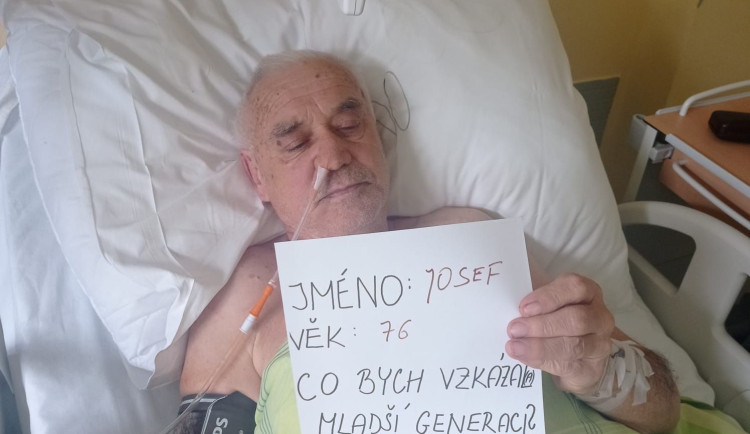 JMÉNO: JOSEF
VĚK: 76
CO BYCH VZKÁZAL(A)
MLADŠÍ GENERACI?